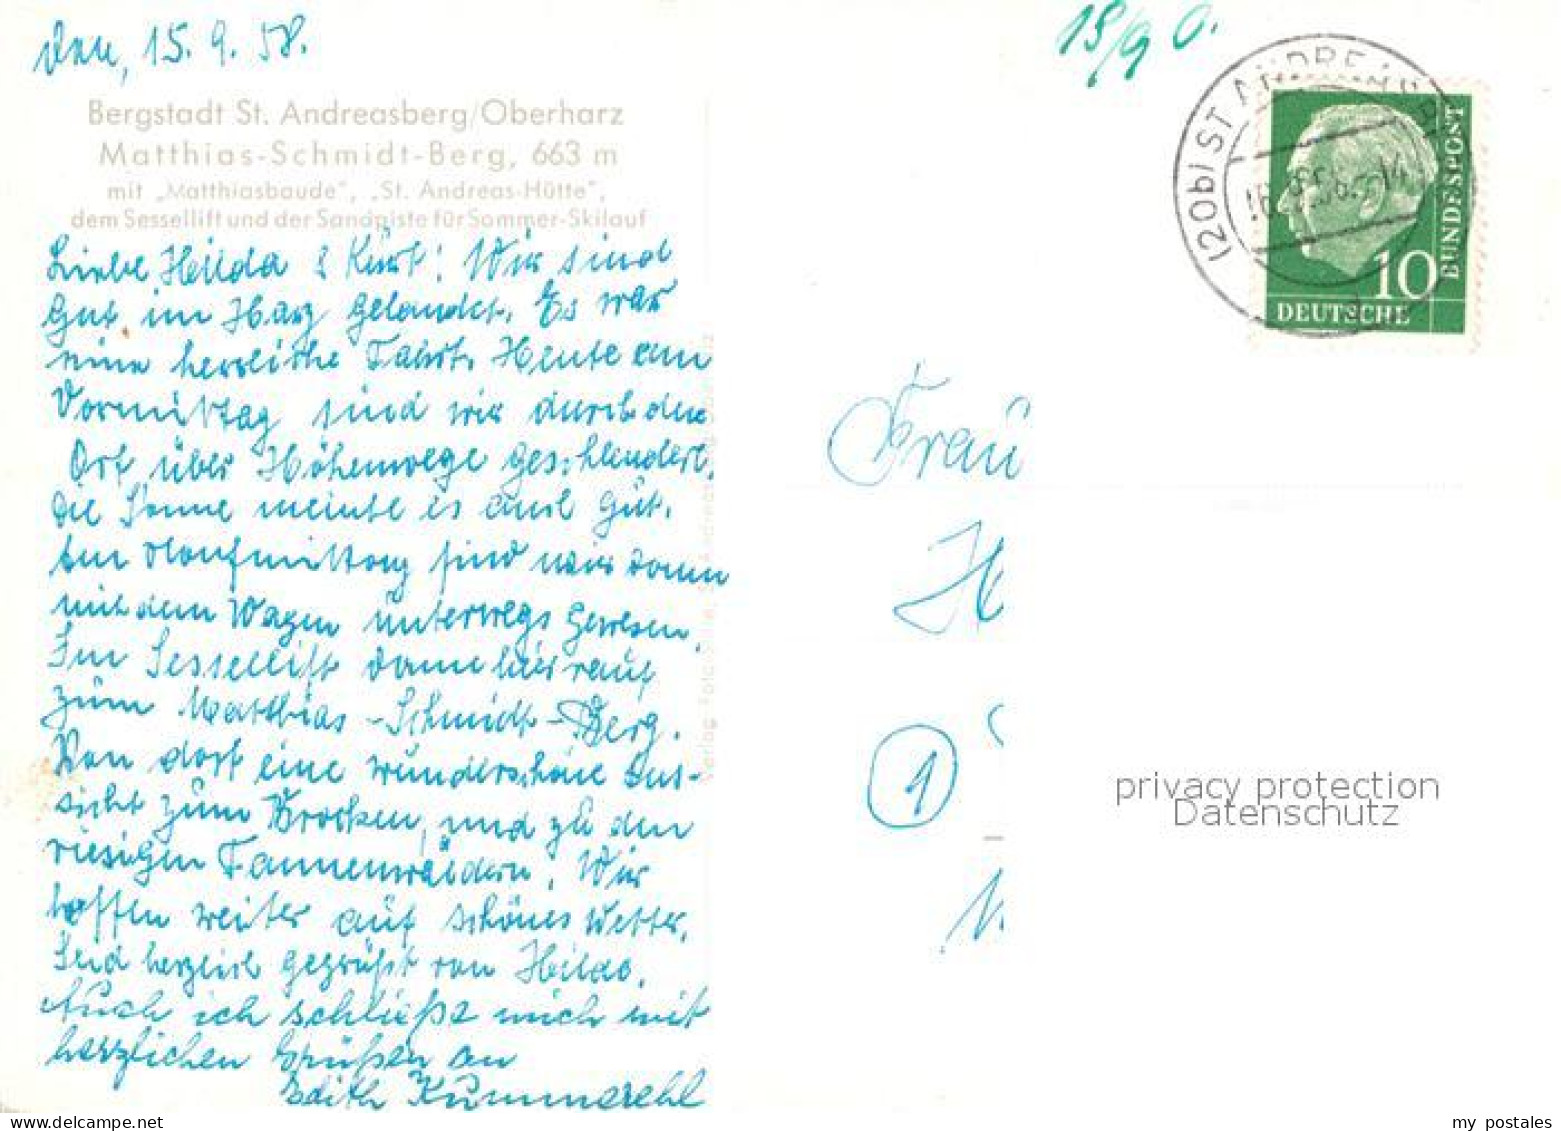 Den, 15. 9. 58.
Bergstadt St. Andreasberg/Oberharz
Matthias-Schmidt-Berg, 663 m
mit „Matthiasbaude", „St. Andreas-Hütte",
dem Sessellift und der Sandpiste für Sommer-Skilauf
Liebe Heilda & Kurt! Wir sind
Gut im Harz gelandet. Es war
eine herrliche Fahrt. Heute am
Vormittag sind wir durch den
Ort über Höhenwege geschlendert.
Die Sonne meinte es auch gut.
Am Nachmittag sind wir dann
mit dem Wagen unterwegs gewesen.
Im Sessellift dann hier rauf
zum Matthias-Schmidt-Berg.
Von dort eine wunderschöne Aus-
sicht zum Brocken, und zu den
riesigen Tannenwäldern. Wir
hoffen weiter auf schönes Wetter.
Seid herzlich gegrüßt von Hilda.
Auch ich schließe mich mit
herzlichen Grüßen an
Edith Kummerehl
15/9 0.
(20b) ST. ANDREASB
DEUTSCHE
BUNDESPOST
10
Frau
H
1
privacy protection
Datenschutz
www.delcampe.net
my_postales